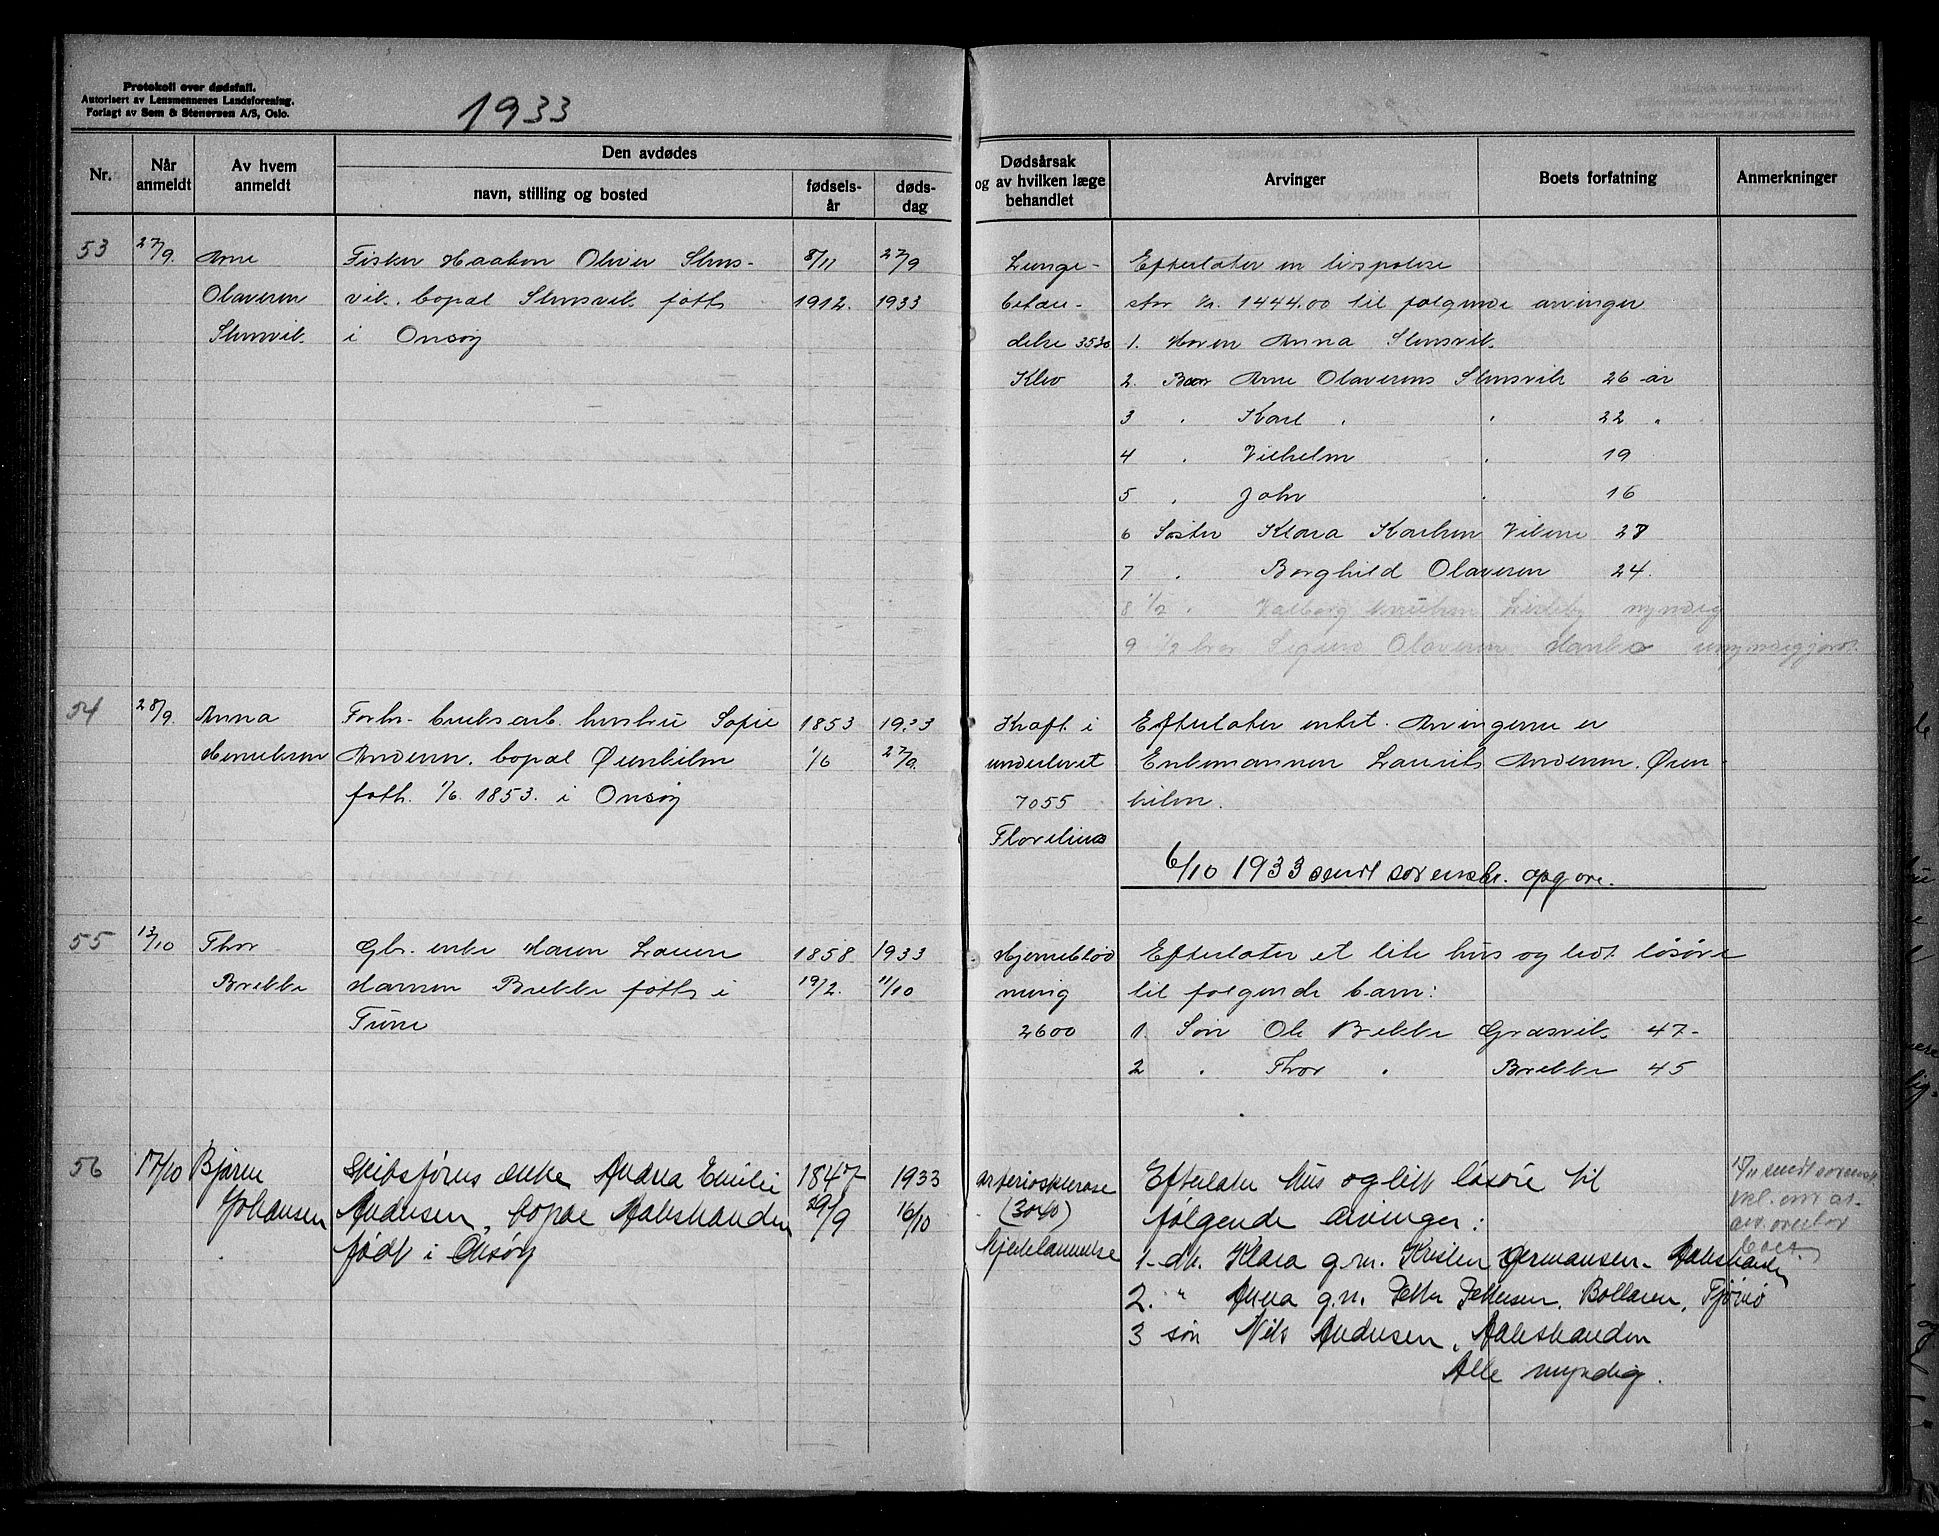 Protokoll over dødsfall.
Autorisert av Lensmennenes Landsforening.
Forlagt av Sem & Stenersen A/S, Oslo.
1933
Nr.
Når anmeldt
Av hvem anmeldt
Den avdødes
navn, stilling og bosted
fødsels-år
døds-dag
Dødsårsak og av hvilken læge behandlet
Arvinger
Boets forfatning
Anmerkninger
53 27/9. Arne Fisker Haakon Oliver Slevs- 8/11 27/9 Lunge- Efterlater en livspolise
Olavesen vik. bopæl Slevsvik født 1912. 1933 betæn- stor kr. 1444.00 til følgende arvinger
Slevsvik i Onsøy delse 3530 1. Moren Anna Slevsvik
Klev 2. Bror Arne Olavesens Slevsvik 26 år
3 " Karl " " 22 "
4 " Vilhelm " 19
5 " John " 16
6 Søster Klara Karlsen Vikene 27
7 " Borghild Olavesen 24.
8 1/2 " Valborg Lisleby myndig
9 1/2 bror Sigurd Olavesen Hankø umyndiggjort.
54 28/9. Anna Forhv. bruksarb. hustru Sofie 1853 1933 Kræft i Efterlater intet. Arvingerne er
Henriksen Andersen. bopæl Ørenholm 1/6 27/9. underlivet Enkemannen Laurits Andersen. Øren-
født. 1/6. 1853. i Onsøy 7055 holm.
6/10 1933 sendt sorenskr. opgave.
55 13/10 Thor Gbr. enke Maren Lovise 1858 1933 Hjerneblød Efterlater et lite hus og lidt løsøre
Brekke Hansen Brekke født i 19/2. 11/10 ning til følgende barn:
Tune 2600 1. Søn Ole Brekke Græsvik 47-
2 " Thor " Brekke 45
56 17/10 Bjarne Skibsførers enke Andrea Emilie 1847 1933 arteriosklerose Efterlater hus og litt løsøre til
Johansen Andersen, bopæl Aalestranden 29/9 16/10 (3040) følgende arvinger:
født i Onsøy Hjertelammelse 1. dt. Klara g.m. Kristen Hermansen - Aalestranden
2. " Anna g.m. Petter Pettersen, Bollæren, Tjømø
3 søn Nils Andersen, Aalestranden
Alle myndig.
sendt sorenskr.
overtar
boet.